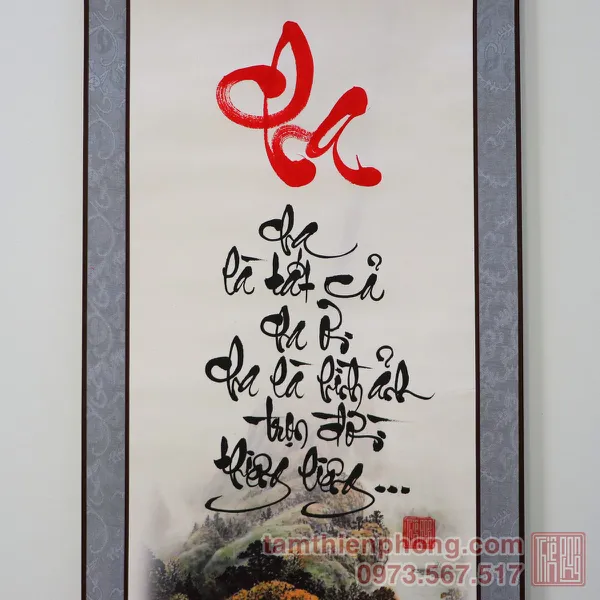 Cha
Cha
là tất cả
Cha ơi
Cha là hình ảnh
trọn đời
thiêng liêng...
tamthienphong.com
0973.567.517